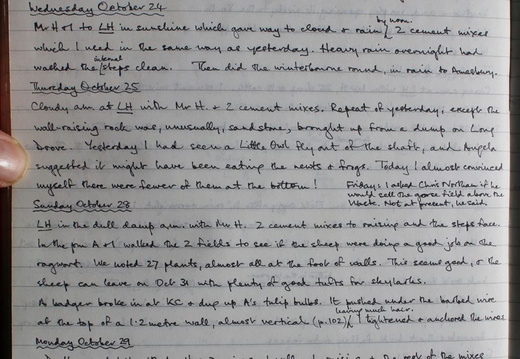 Wednesday October 24
Mr H + I to LH in sunshine which gave way to cloud & rain by noon. 2 cement mixes
which I used in the same way as yesterday. Heavy rain overnight had
washed the lateral steps clean. Then did the winterbourne round, in rain to Amesbury.
Thursday October 25
Cloudy am at LH with Mr H. & 2 cement mixes. Repeat of yesterday, except the
wall-raising rock was, unusually, sandstone, brought up from a dump on Long
Drove. Yesterday I had seen a Little Owl fly out of the shaft, and Angela
suggested it might have been eating the newts & frogs. Today I almost convinced
myself there were fewer of them at the bottom!
Friday: I asked Chris Northam if he
would sell the gorse field above the
Waste. Not at present, he said.
Sunday October 28
LH in the dull damp a.m. with Mr H. 2 cement mixes to raising and the steps face.
In the pm A + I walked the 2 fields to see if the sheep were doing a good job on the
ragwort. We noted 27 plants, almost all at the foot of walls. This seems good, & the
sheep can leave on Oct 31 with plenty of good tufts for skylarks.
A badger broke in at KC & dug up A's tulip bulbs. It pushed under the barbed wire
at the top of a 1.2 metre wall, almost vertical (p.102) leaving much hair. I tightened & anchored the wires
Monday October 29